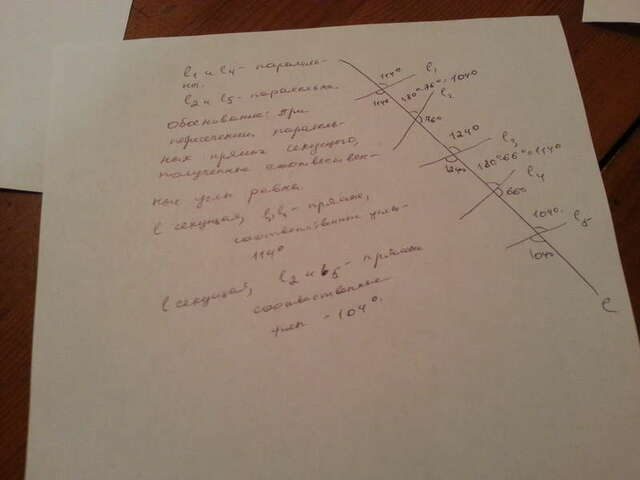 l₁ и l₄ - параллель-
ны.
l₂ и l₅ - параллельны.
Обоснование: При
пересечении параллель-
ных прямых секущего,
полученные соответствен-
ные углы равны.
l секущая, l₁ l₄ - прямые,
соответственные углы -
114°
l секущая, l₂ и l₅ - прямые
соответственные
углы - 104°.
114°
l₁
114°
180°-76°=104°
l₂
76°
124°
l₃
124°
180°-66°=114°
l₄
66°
104°.
l₅
104°
l